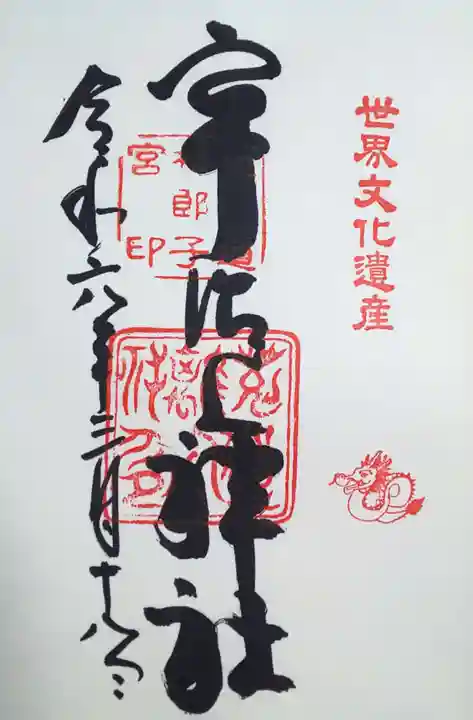 世界文化遺産
宇治上神社
道
郎子
宮印
令和六年三月十八日